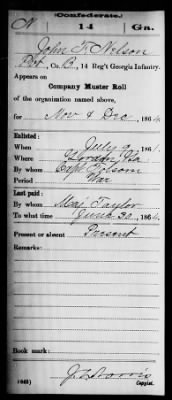 (Confederate.)
N 14 Ga.
John F. Nelson
Pvt, Co. B, 14 Reg't Georgia Infantry.
Appears on
Company Muster Roll
of the organization named above,
for Nov & Dec, 1864.
Enlisted:
When July 9, 1861.
Where Gordon Ga
By whom Capt Folsom
Period War
Last paid:
By whom Maj Taylor
To what time June 30, 1864.
Present or absent Present
Remarks:
Book mark:
Copyist.